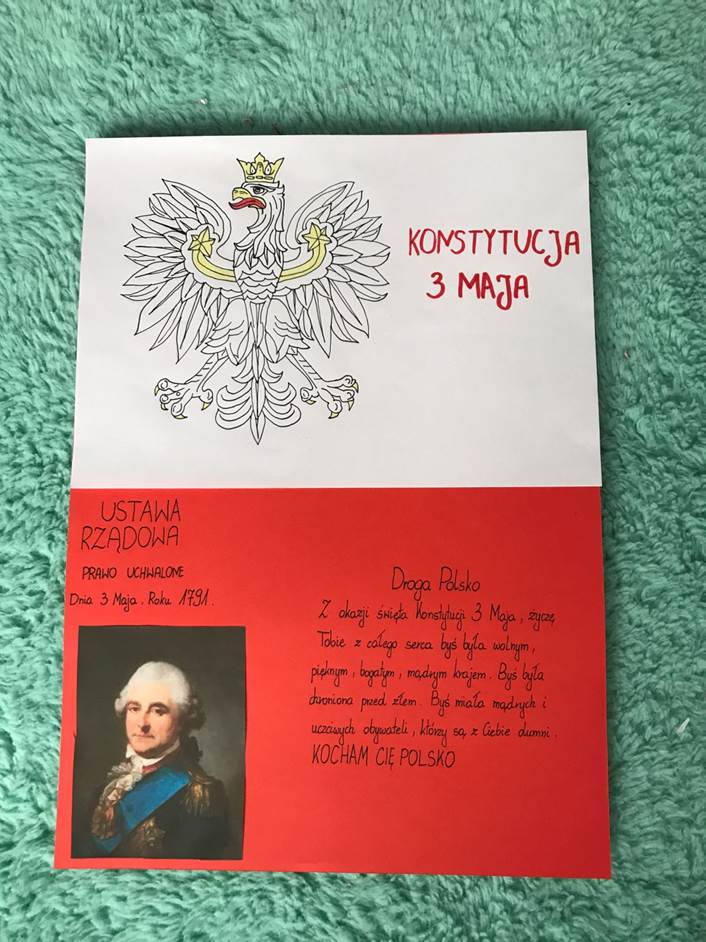 KONSTYTUCJA
3 MAJA
USTAWA
RZĄDOWA
PRAWO UCHWALONE
Dnia 3 Maja. Roku 1791.
Droga Polsko
Z okazji święta Konstytucji 3 Maja, życzę
Tobie z całego serca byś była wolnym,
pięknym, bogatym, mądrym krajem. Byś była
chroniona przed złem. Byś miała mądrych i
uczciwych obywateli, którzy są z Ciebie dumni.
KOCHAM CIĘ POLSKO